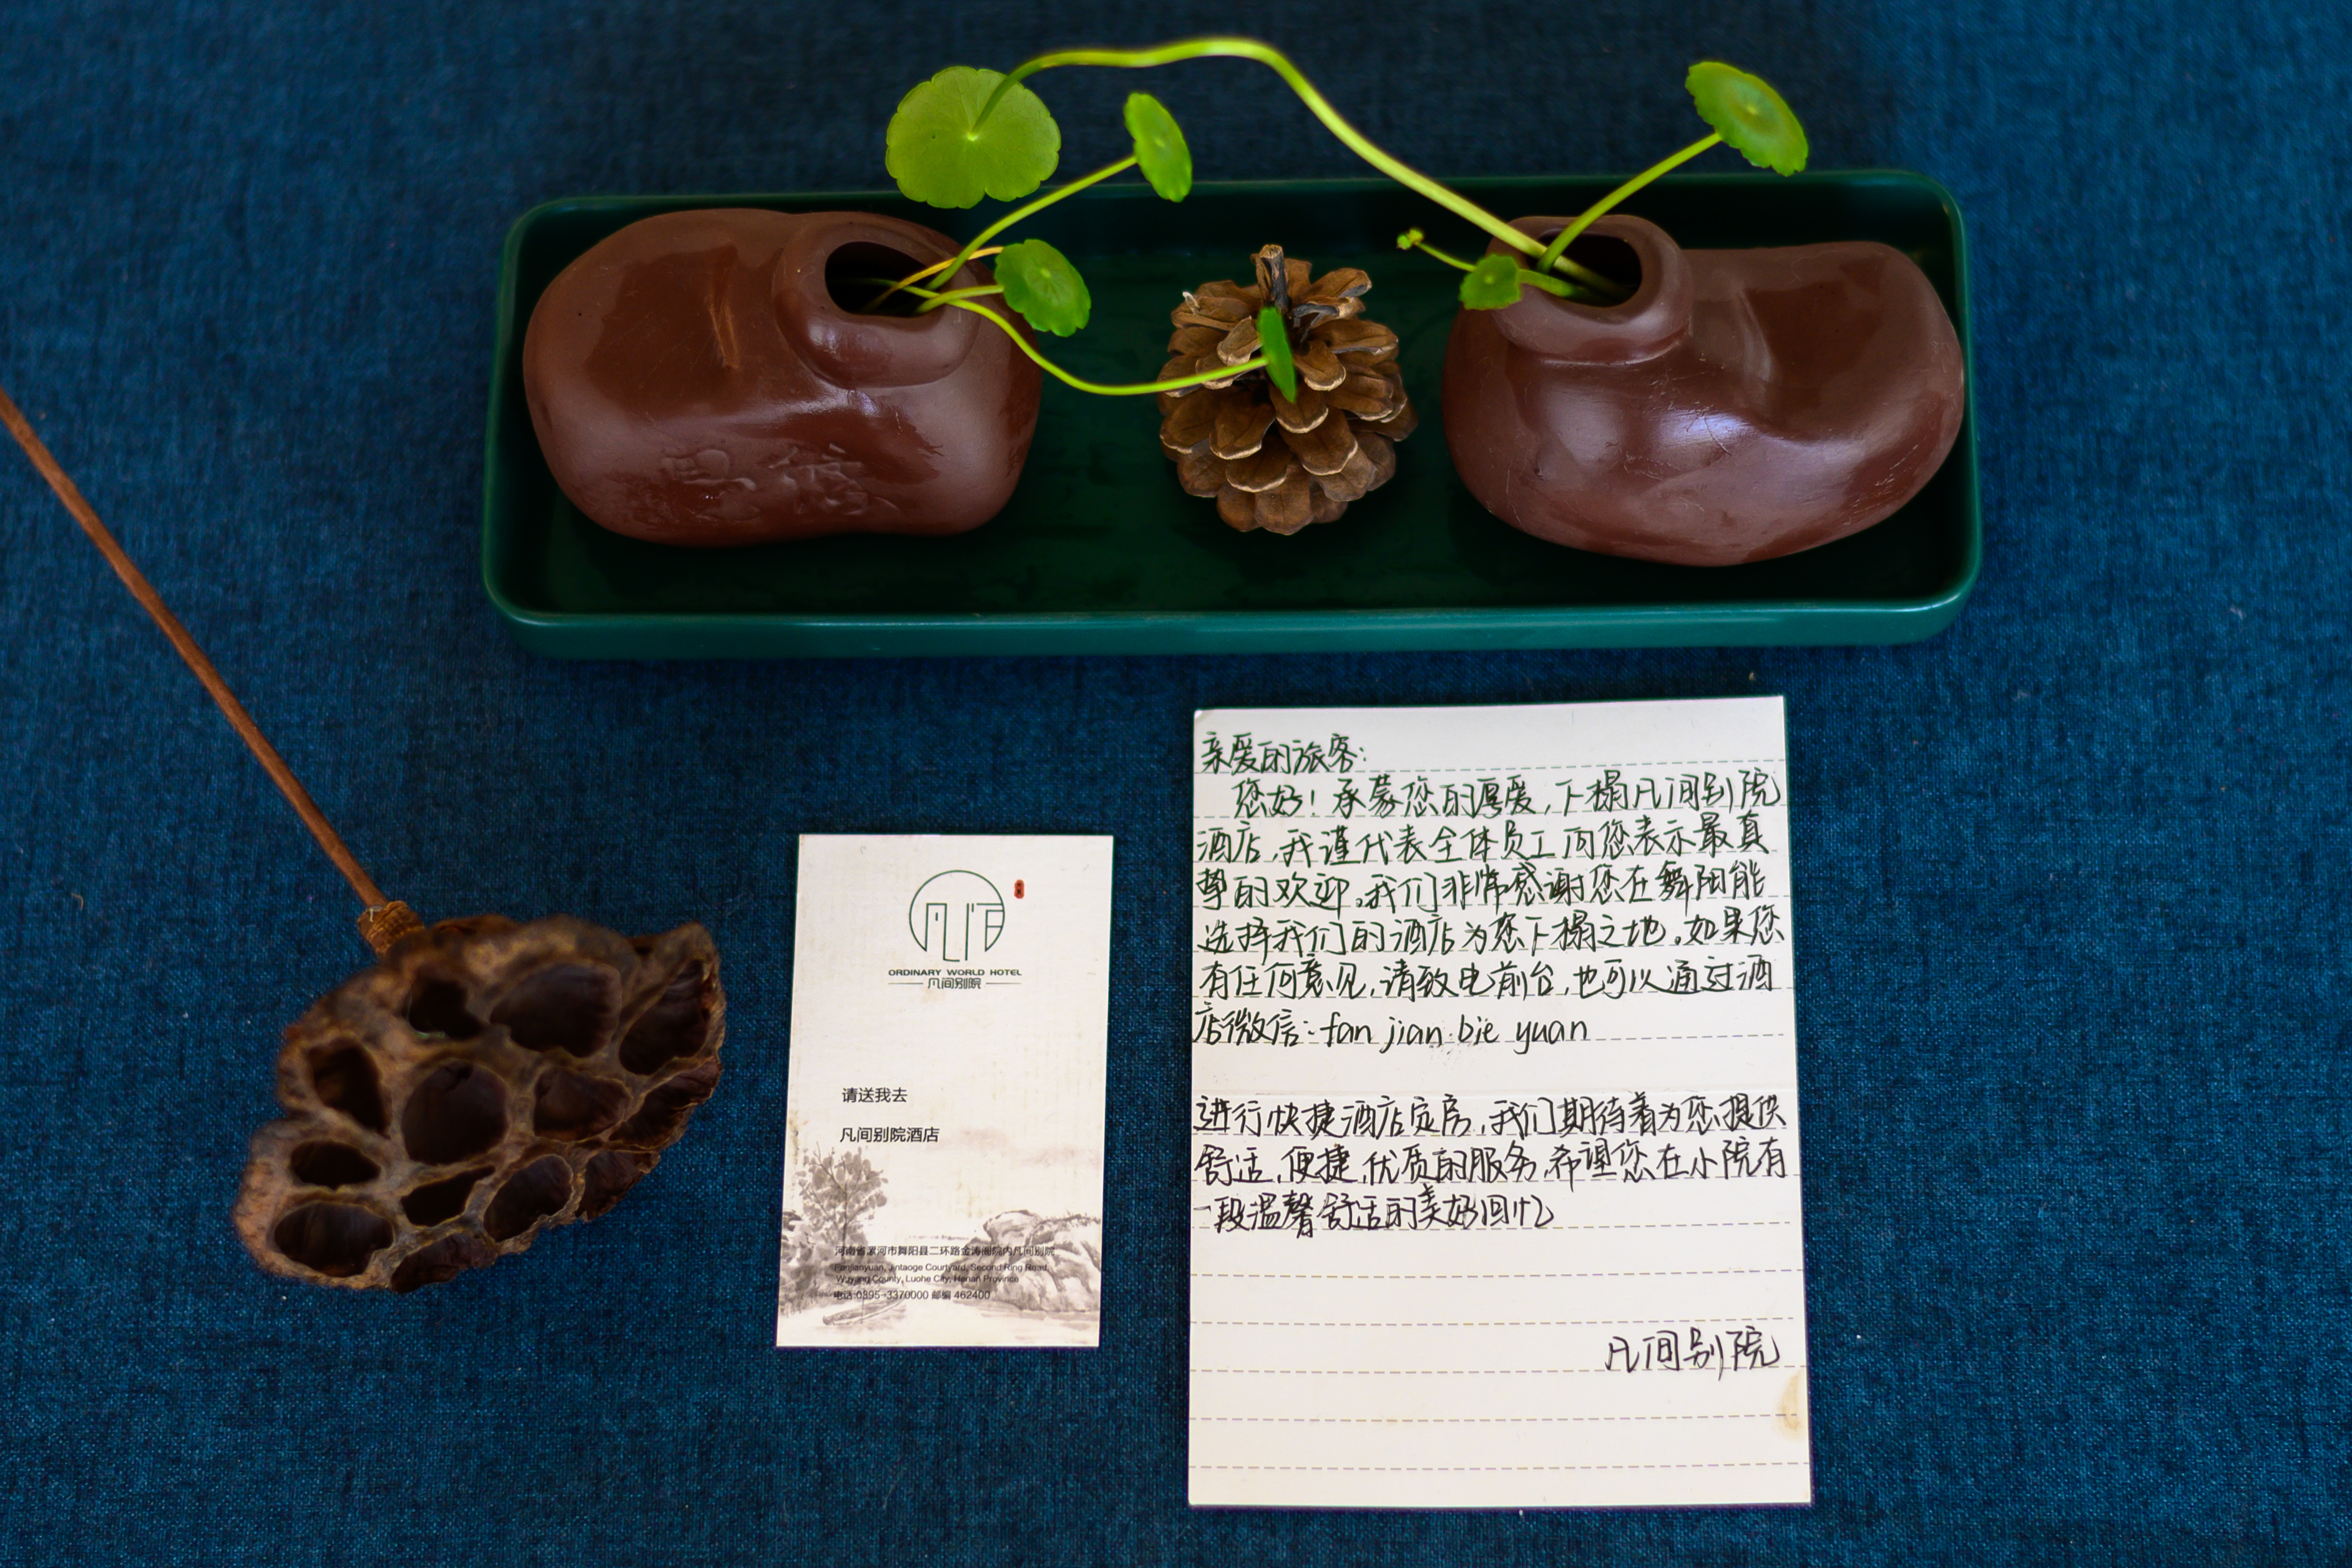 凡间
ORDINARY WORLD HOTEL
凡间别院
请送我去
凡间别院酒店
河南省漯河市舞阳县二环路金涛阁院内凡间别院
Fanjianyuan, Jintaoge Courtyard, Second Ring Road,
Wuyang County, Luohe City, Henan Province
电话:0395-3370000 邮编 462400
亲爱的旅客:
您好!承蒙您的厚爱,下榻凡间别院
酒店,我谨代表全体员工向您表示最真
挚的欢迎。我们非常感谢您在舞阳能
选择我们的酒店为您下榻之地。如果您
有任何意见,请致电前台,也可以通过酒
店微信:fan jian bie yuan
进行快捷酒店定房,我们期待着为您提供
舒适,便捷,优质的服务,希望您在小院有
一段温馨舒适的美好回忆
凡间别院